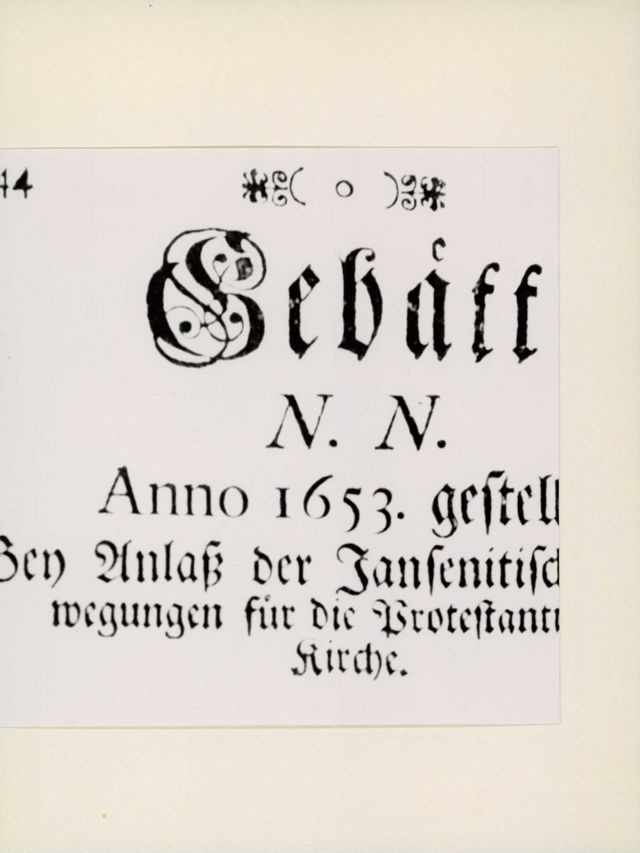 44
Gebätt
N. N.
Anno 1653. gestell
Bey Anlaß der Jansenitisch
wegungen für die Protestanti
Kirche.